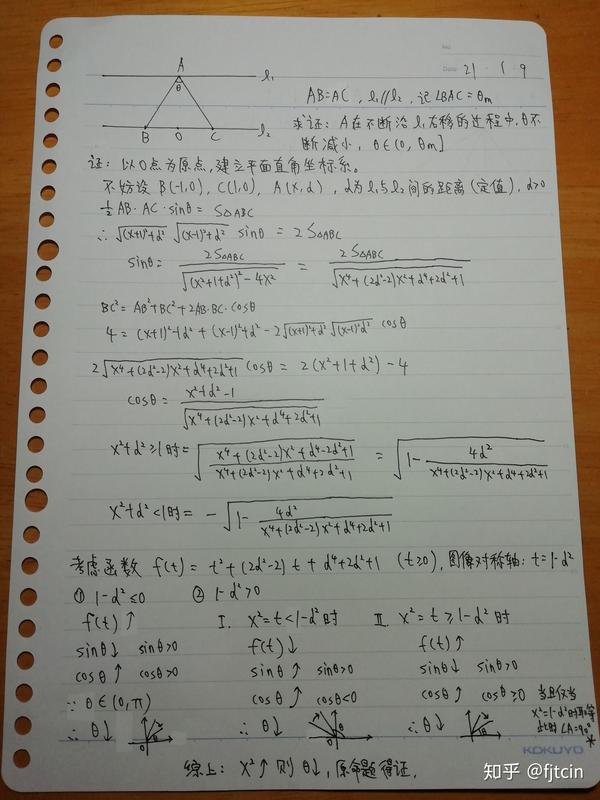 No.
Date 21 · 1 · 9
A
θ
l₁
B O C
l₂
AB=AC, l₁//l₂, 记∠BAC=θm
求证: A在不断沿l₁右移的过程中,θ不
断减小, θ∈(0, θm]
证: 以O点为原点,建立平面直角坐标系。
不妨设 B(-1,0), C(1,0), A(x,d), d为l₁与l₂间的距离(定值), d>0
½AB·AC·sinθ = S△ABC
∴ √((x+1)²+d²) √((x-1)²+d²) sinθ = 2S△ABC
sinθ = 2S△ABC / √((x²+1+d²)²-4x²) = 2S△ABC / √(x⁴+(2d²-2)x²+d⁴+2d²+1)
BC² = AB²+BC²+2AB·BC·cosθ
4 = (x+1)²+d²+(x-1)²+d²-2√((x+1)²+d²) √((x-1)²+d²) cosθ
2√(x⁴+(2d²-2)x²+d⁴+2d²+1) cosθ = 2(x²+1+d²)-4
cosθ = (x²+d²-1) / √(x⁴+(2d²-2)x²+d⁴+2d²+1)
x²+d²≥1时 = √((x⁴+(2d²-2)x²+d⁴-2d²+1) / (x⁴+(2d²-2)x²+d⁴+2d²+1)) = √(1-4d²/(x⁴+(2d²-2)x²+d⁴+2d²+1))
x²+d²<1时 = -√(1-4d²/(x⁴+(2d²-2)x²+d⁴+2d²+1))
考虑函数 f(t) = t²+(2d²-2)t+d⁴+2d²+1 (t≥0), 图像对称轴: t=1-d²
① 1-d²≤0 ② 1-d²>0
f(t)↑ I. x²=t<1-d²时 II. x²=t≥1-d²时
sinθ↓ sinθ>0 f(t)↓ f(t)↑
cosθ↑ cosθ>0 sinθ↑ sinθ>0 sinθ↓ sinθ>0
∵ θ∈(0,π) cosθ↑ cosθ<0 cosθ↑ cosθ≥0 当且仅当
x²=1-d²时取等
此时∠A=90°
∴ θ↓ ∴ θ↓ ∴ θ↓
综上: x²↑则θ↓, 原命题得证.
KOKUYO
知乎 @fjtcin